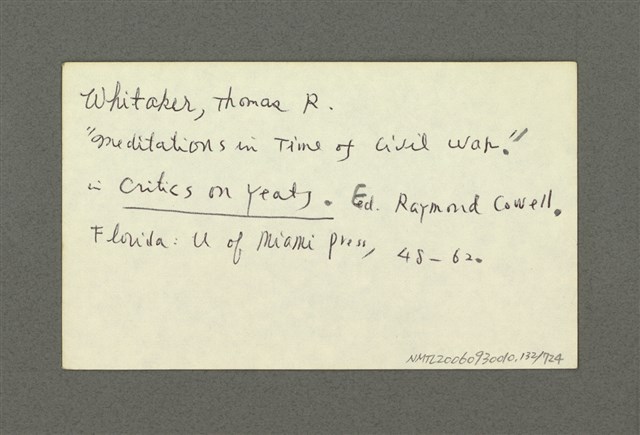 Whitaker, Thomas R.
"Meditations in Time of Civil War."
in Critics on Yeats. Ed. Raymond Cowell.
Florida: U of Miami Press, 48-62.
NMTL20060930010.132/724